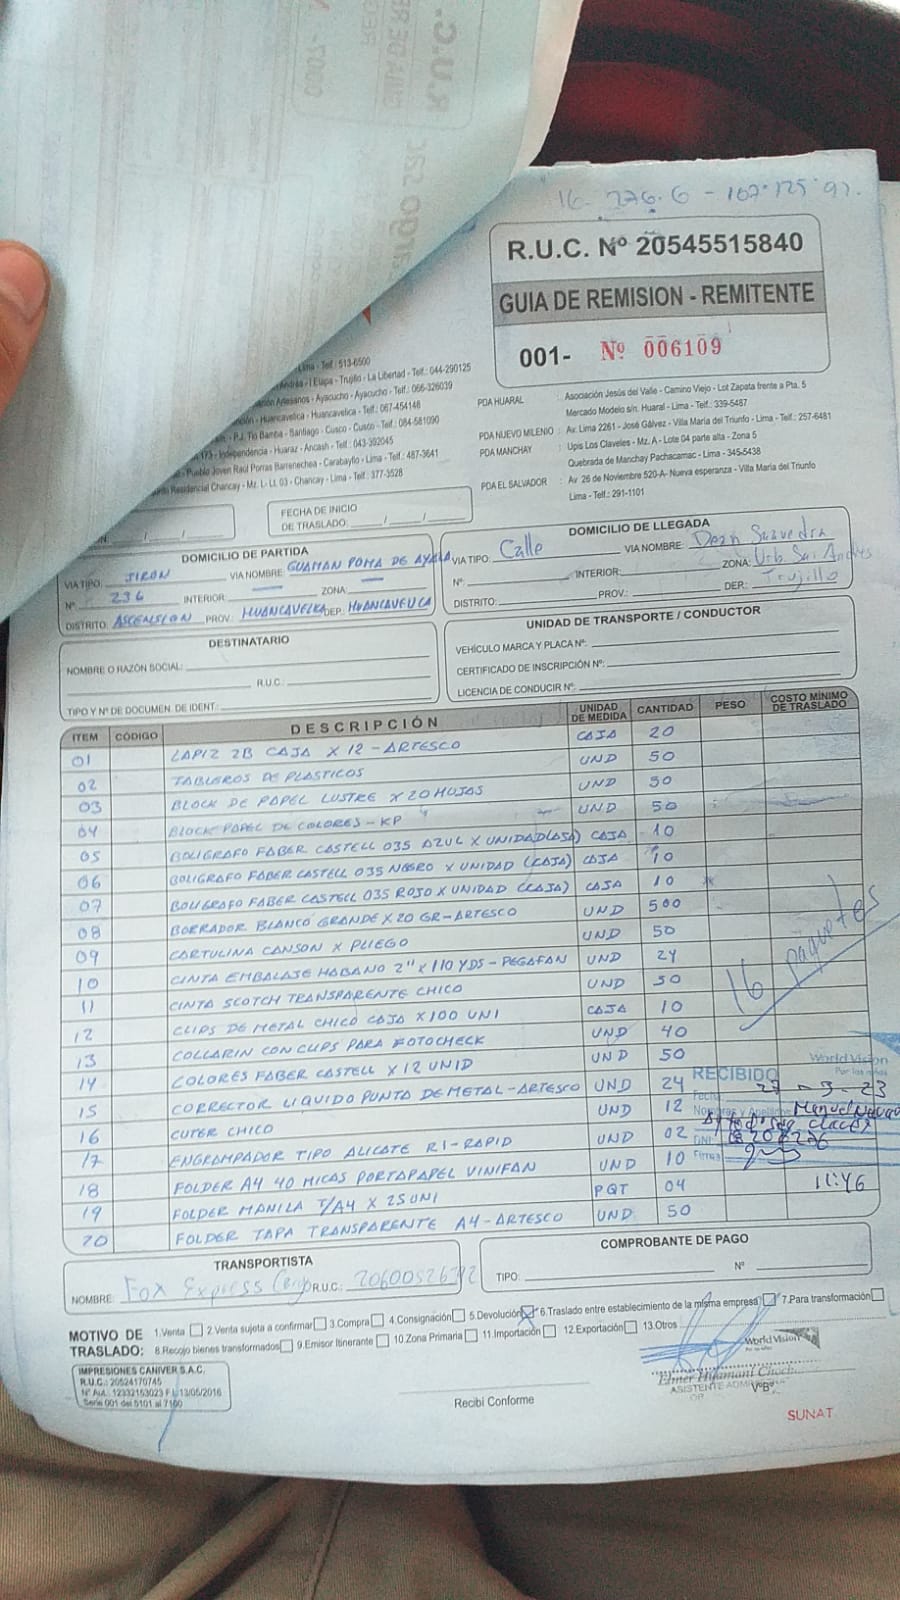 16. 276.6 - 167.125.92.
R.U.C. Nº 20545515840
GUIA DE REMISION - REMITENTE
001- Nº 006109
Lima - Telf.: 513-6500
I Etapa - Trujillo - La Libertad - Telf.: 044-290125
Artesanos - Ayacucho - Ayacucho - Telf.: 066-326039
Huancavelica - Huancavelica - Telf.: 067-454148
P.J. Tio Bamba - Santiago - Cusco - Cusco - Telf.: 084-581090
Independencia - Huaraz - Ancash - Telf.: 043-392045
Pueblo Joven Raúl Porras Barrenechea - Carabayllo - Lima - Telf.: 487-3641
Residencial Chancay - Mz. L - Lt. 03 - Chancay - Lima - Telf.: 377-3528
PDA HUARAL : Asociación Jesús del Valle - Camino Viejo - Lot Zapata frente a Pta. 5
Mercado Modelo s/n. Huaral - Lima - Telf.: 339-5487
PDA NUEVO MILENIO : Av. Lima 2261 - José Gálvez - Villa María del Triunfo - Lima - Telf.: 257-6481
PDA MANCHAY : Upis Los Claveles - Mz. A - Lote 04 parte alta - Zona 5
Quebrada de Manchay Pachacamac - Lima - 345-5438
PDA EL SALVADOR : Av 26 de Noviembre 520-A- Nueva esperanza - Villa María del Triunfo
Lima - Telf.: 291-1101
FECHA DE INICIO
DE TRASLADO:
DOMICILIO DE PARTIDA
VIA TIPO: JIRON VIA NOMBRE: GUAMAN POMA DE AYALA
Nº 236 INTERIOR: — ZONA: —
DISTRITO: ASCENSION PROV.: HUANCAVELICA DEP.: HUANCAVELICA
DOMICILIO DE LLEGADA
VIA TIPO: Calle VIA NOMBRE: Dean Saavedra
Nº: INTERIOR: ZONA: Urb. San Andres
DISTRITO: PROV.: DEP.: Trujillo
DESTINATARIO
NOMBRE O RAZÓN SOCIAL:
R.U.C.:
TIPO Y Nº DE DOCUMEN. DE IDENT.:
UNIDAD DE TRANSPORTE / CONDUCTOR
VEHÍCULO MARCA Y PLACA Nº:
CERTIFICADO DE INSCRIPCIÓN Nº:
LICENCIA DE CONDUCIR Nº:
ITEM CÓDIGO DESCRIPCIÓN UNIDAD DE MEDIDA CANTIDAD PESO COSTO MÍNIMO DE TRASLADO
01 LAPIZ 2B CAJA X 12 - ARTESCO CAJA 20
02 TABLEROS DE PLASTICOS UND 50
03 BLOCK DE PAPEL LUSTRE X 20 HOJAS UND 50
04 BLOCK PAPEL DE COLORES - KP UND 50
05 BOLIGRAFO FABER CASTELL 035 AZUL X UNIDAD (CAJA) CAJA 10
06 BOLIGRAFO FABER CASTELL 035 NEGRO X UNIDAD (CAJA) CAJA 10
07 BOLIGRAFO FABER CASTELL 035 ROJO X UNIDAD (CAJA) CAJA 10
08 BORRADOR BLANCO GRANDE X 20 GR - ARTESCO UND 500
09 CARTULINA CANSON X PLIEGO UND 50
10 CINTA EMBALAJE HABANO 2" X 110 YDS - PEGAFAN UND 24
11 CINTA SCOTCH TRANSPARENTE CHICO UND 50
12 CLIPS DE METAL CHICO CAJA X 100 UNI CAJA 10
13 COLLARIN CON CLIPS PARA FOTOCHECK UND 40
14 COLORES FABER CASTELL X 12 UNID UND 50
15 CORRECTOR LIQUIDO PUNTA DE METAL - ARTESCO UND 24
16 CUTER CHICO UND 12
17 ENGRAMPADOR TIPO ALICATE R1 - RAPID UND 02
18 FOLDER A4 40 MICAS PORTAPAPEL VINIFAN UND 10
19 FOLDER MANILA T/A4 X 25 UNI PQT 04
20 FOLDER TAPA TRANSPARENTE A4 - ARTESCO UND 50
16 paquetes
World Vision
Por los niños
RECIBIDO
Fecha 27 - 3 - 23
Manuel
DNI
Firma
11:46
TRANSPORTISTA
NOMBRE: Fox Express Cargo R.U.C.: 20600526392
COMPROBANTE DE PAGO
TIPO: Nº
MOTIVO DE TRASLADO: 1.Venta 2.Venta sujeta a confirmar 3.Compra 4.Consignación 5.Devolución 6.Traslado entre establecimiento de la misma empresa 7.Para transformación
8.Recojo bienes transformados 9.Emisor Itinerante 10.Zona Primaria 11.Importación 12.Exportación 13.Otros
IMPRESIONES CANIVER S.A.C.
R.U.C.: 20524170745
Nº Aut.: 12332153023 F.I. 13/05/2016
Serie 001 del 5101 al 7100
Recibí Conforme
World Vision
ASISTENTE
VºBº
SUNAT